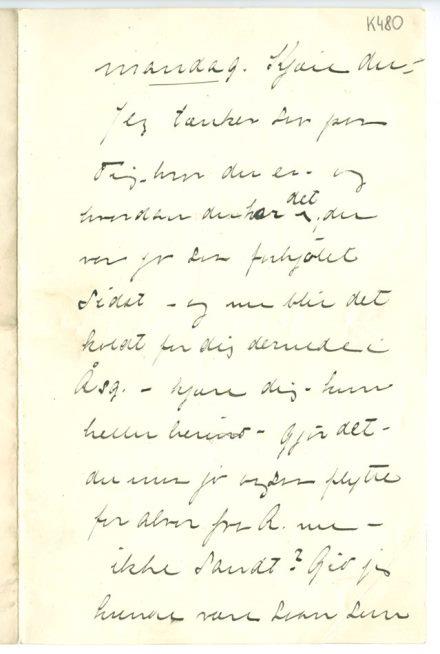 K480
mandag. Kjære du –
Jeg tænker saa paa
Dig – hvor du er – og
hvordan du har det, du
var jo saa forkjølet
sidst – og nu blir det
koldt for dig dernede i
Åsg. – kjære dig – kom
heller herind – Gjør det –
du maa jo ogsaa flytte
for alvor fra A. nu –
ikke sandt? Gid jeg
kunde være saan som